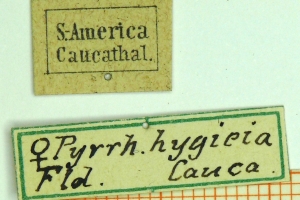 S. America
Caucathal.
♀ Pyrrh. hygieia
Fld. Cauca.